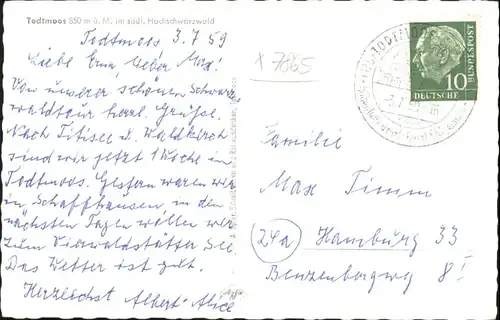 Todtmoos 850 m ü. M. im südl. Hochschwarzwald
Todtmoos 3.7.59
Liebe Erna, lieber Max!
Von unserer schönen Schwarz
waldtour herzl. Grüße.
Nach Titisee u. Waldkirch
sind wir jetzt 1 Woche in
Todtmoos. Gestern waren wir
in Schaffhausen in den
nächsten Tagen wollen wir
zum Vierwaldstätter See
Das Wetter ist gut.
Herzlichst Albert-Alice
x 7865
TODTMOOS
DEUTSCHE
BUNDESPOST
10
Familie
Max Timm
24a Hamburg 33
Benzenbergweg 8 I